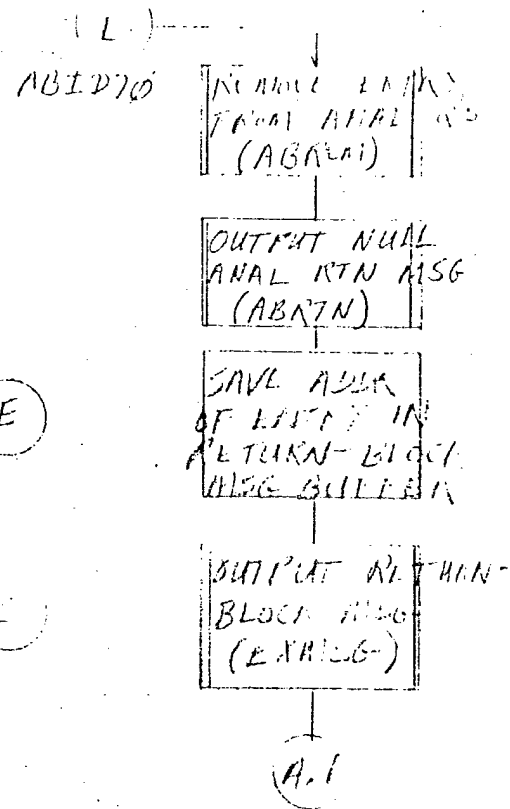 (L)
ABID70
REMOVE ENTRY
FROM ANAL
OUTPUT NULL
ANAL RTN MSG
(ABRTN)
SAVE ADDR
OF ENTRY IN
RETURN-BLOCK
MSG BUFFER
E
OUTPUT RETURN-
BLOCK MSG
A.1